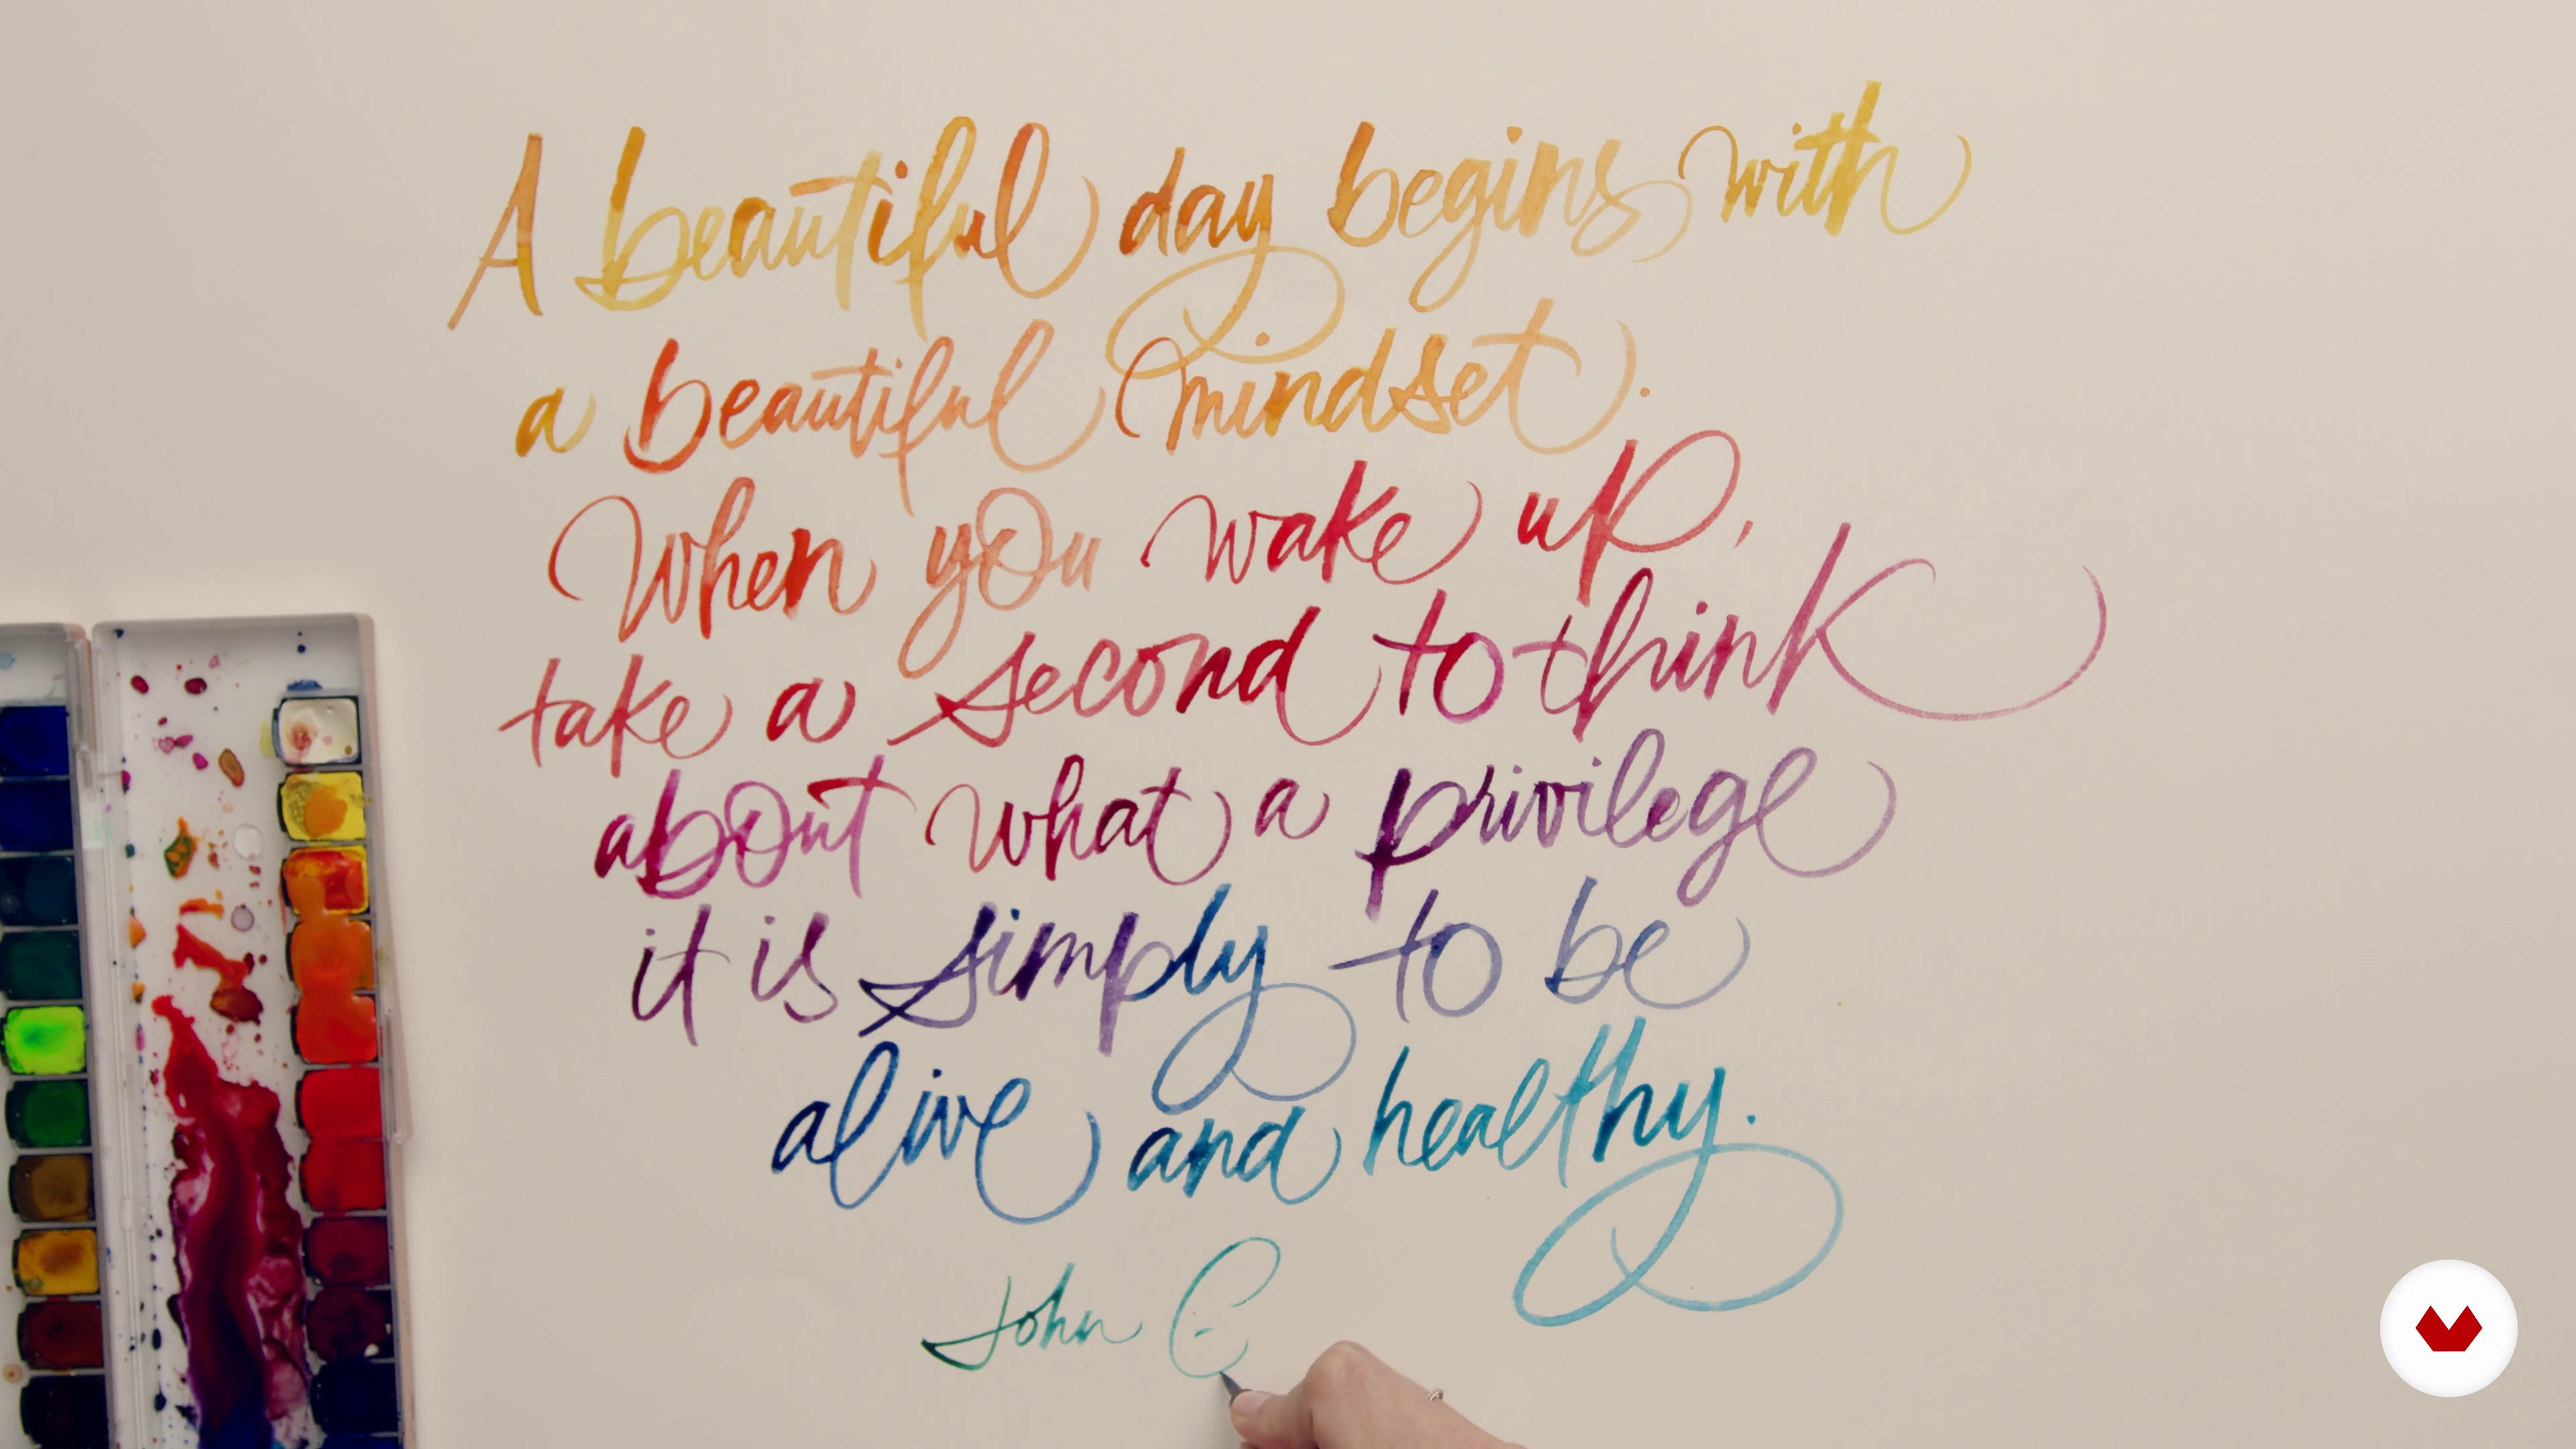 A beautiful day begins with
a beautiful mindset.
When you wake up,
take a second to think
about what a privilege
it is simply to be
alive and healthy.
John